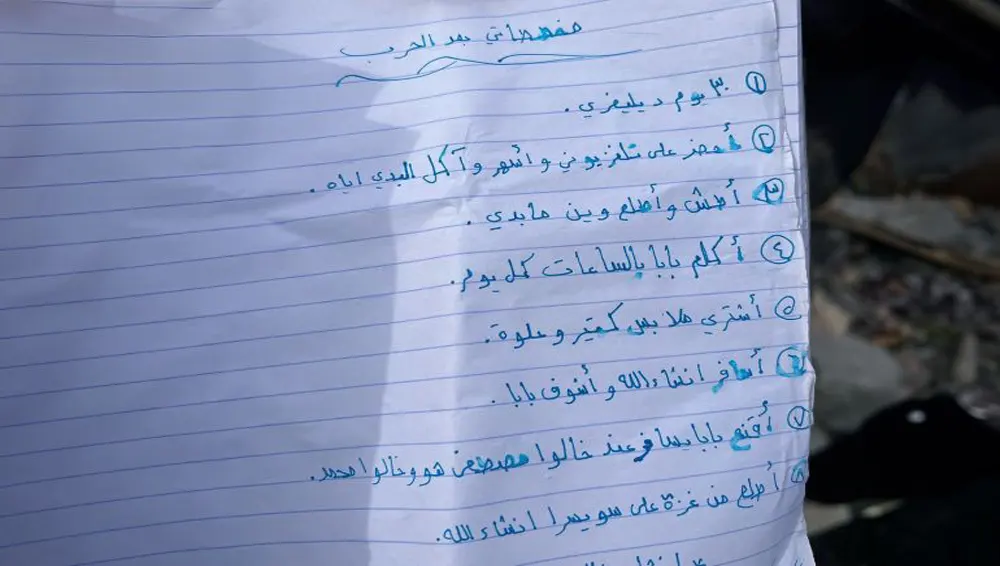 مخططاتي بعد الحرب
① ٣٠ يوم ديليفري.
② أحضر على تلفزيوني واسهر وآكل البدي اياه.
③ أطش وأطلع وين مابدي.
④ أكلم بابا بالساعات كل يوم.
⑤ أشتري ملابس كتير وحلوة.
⑥ أسافر انشاءالله وأشوف بابا.
⑦ أقنع بابا يسافر عند خالوا مصطفى هو وخالوا محمد.
⑧ أطلع من غزة على سويسرا انشاءالله.